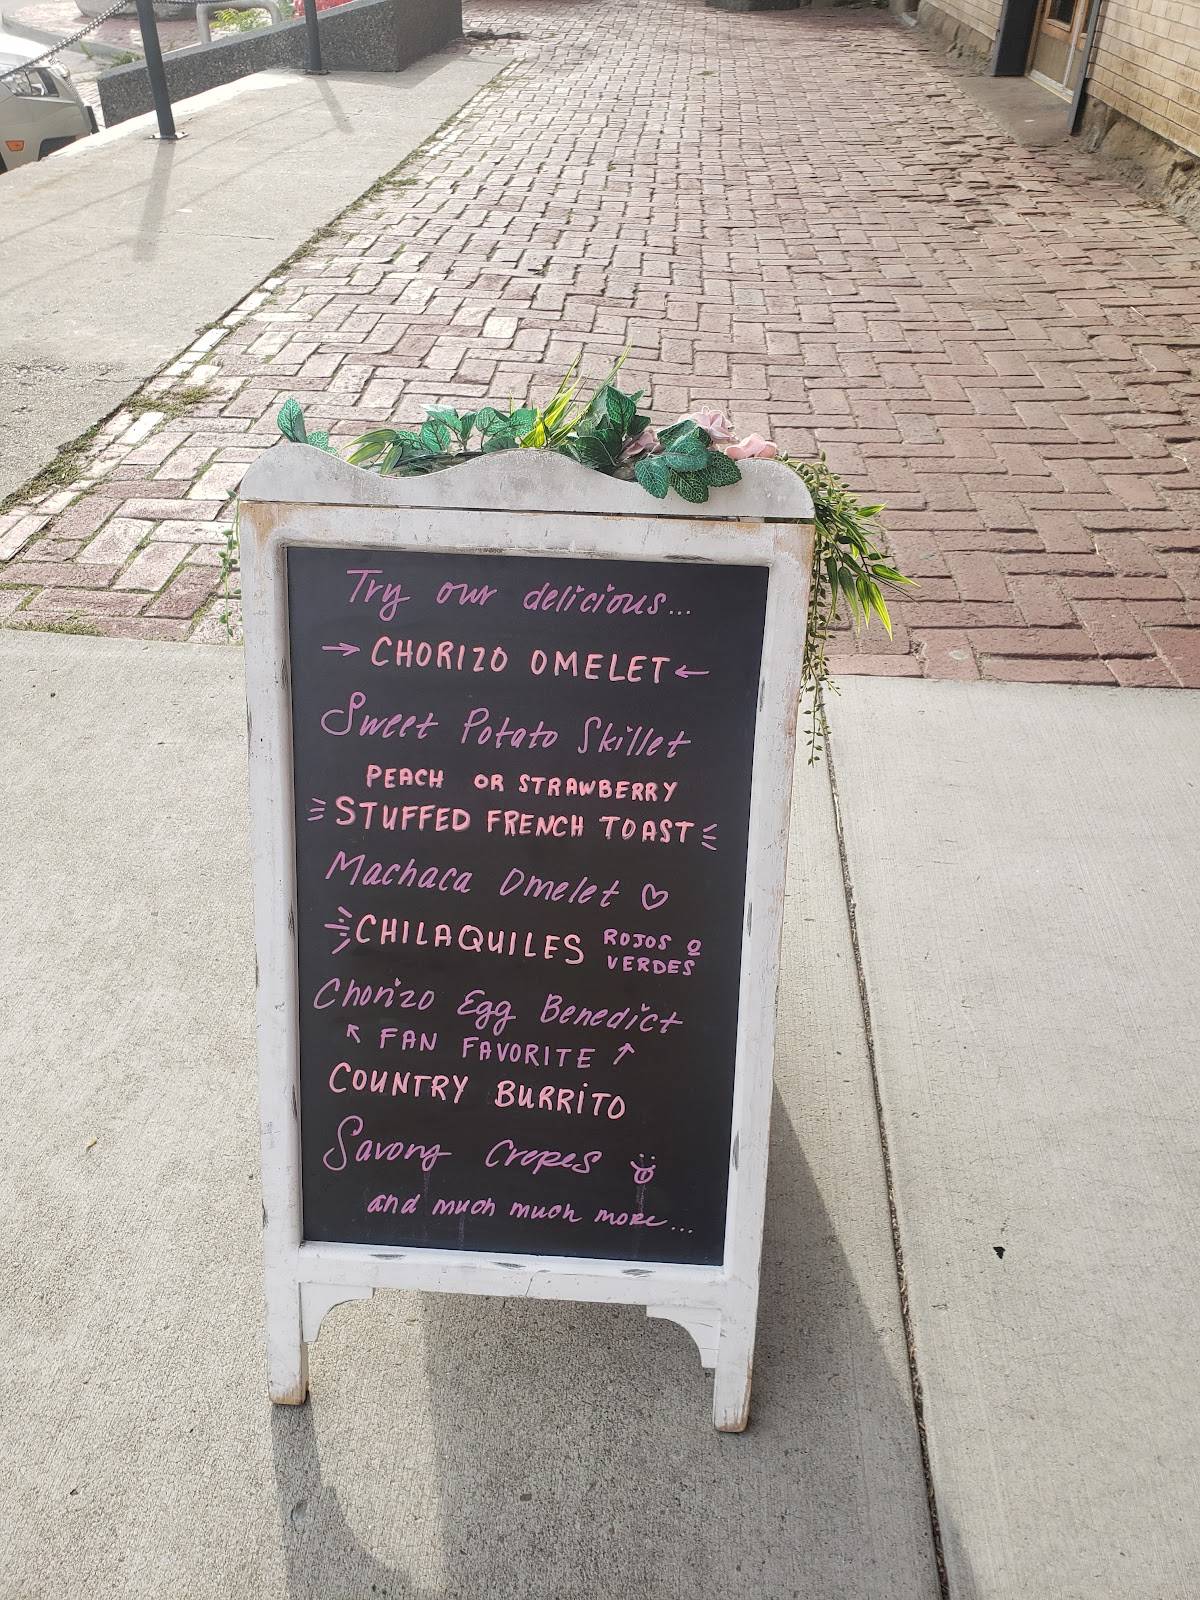 Try our delicious...
→ CHORIZO OMELET ←
Sweet Potato Skillet
PEACH OR STRAWBERRY
STUFFED FRENCH TOAST
Machaca Omelet ♡
CHILAQUILES ROJOS O
VERDES
Chorizo Egg Benedict
↖ FAN FAVORITE ↗
COUNTRY BURRITO
Savory Crepes
and much much more...